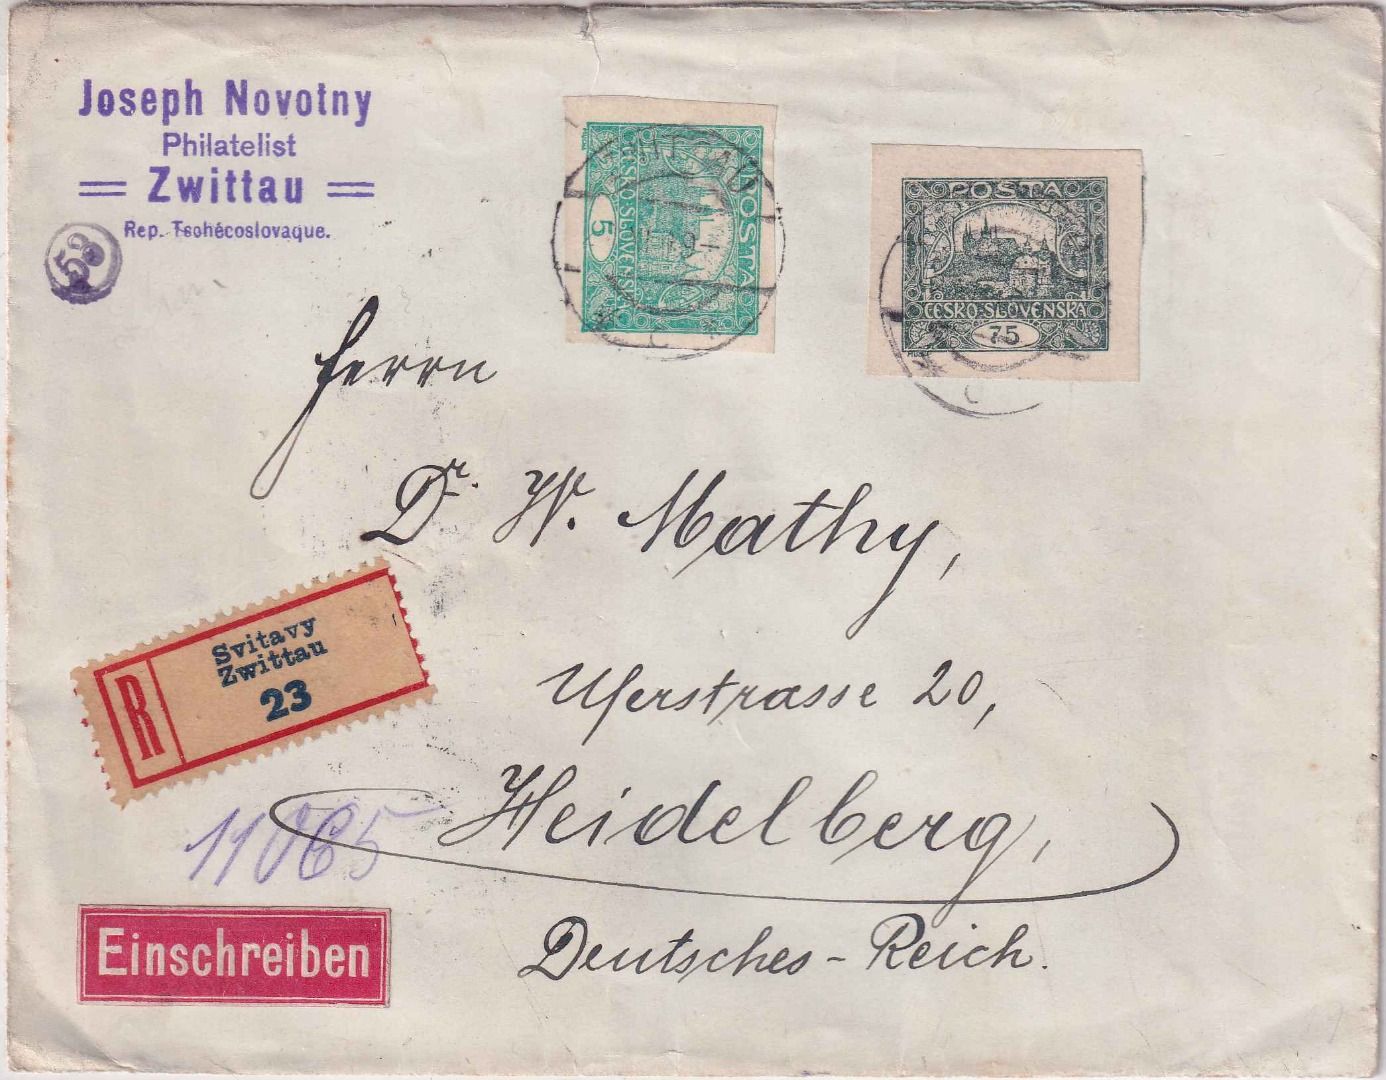 Joseph Novotny
Philatelist
Zwittau
Rep. Tsohécoslovaque.
53
POSTA
ČESKO-SLOVENSKÁ
5
POSTA
ČESKO-SLOVENSKÁ
75
Herrn
Dr. W. Mathy,
Uferstrasse 20,
Heidelberg,
Deutsches-Reich.
R
Svitavy
Zwittau
23
11065
Einschreiben